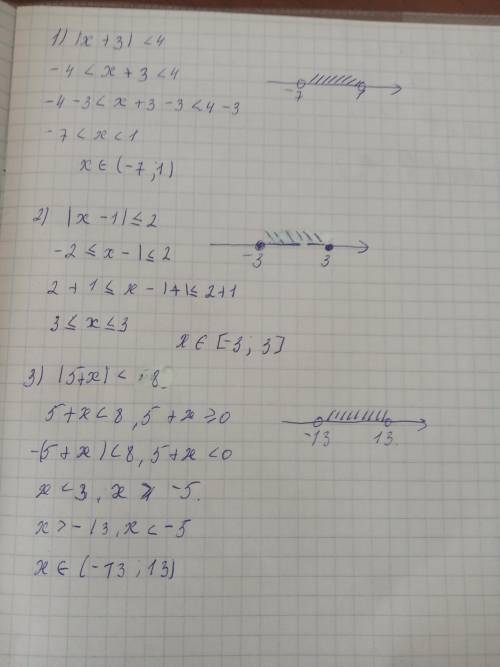 1) |x + 3| < 4
-4 < x + 3 < 4
-7 1
-4 - 3 < x + 3 - 3 < 4 - 3
-7 < x < 1
x ∈ (-7 ; 1)
2) |x - 1| ≤ 2
-2 ≤ x - 1 ≤ 2
-3 3
2 + 1 ≤ x - 1 + 1 ≤ 2 + 1
3 ≤ x ≤ 3
x ∈ [-3 ; 3]
3) |5 + x| < 8
5 + x < 8 , 5 + x ≥ 0
-13 13
-(5 + x) < 8, 5 + x < 0
x < 3, x ≥ -5.
x > -13, x < -5
x ∈ (-13 ; 13)